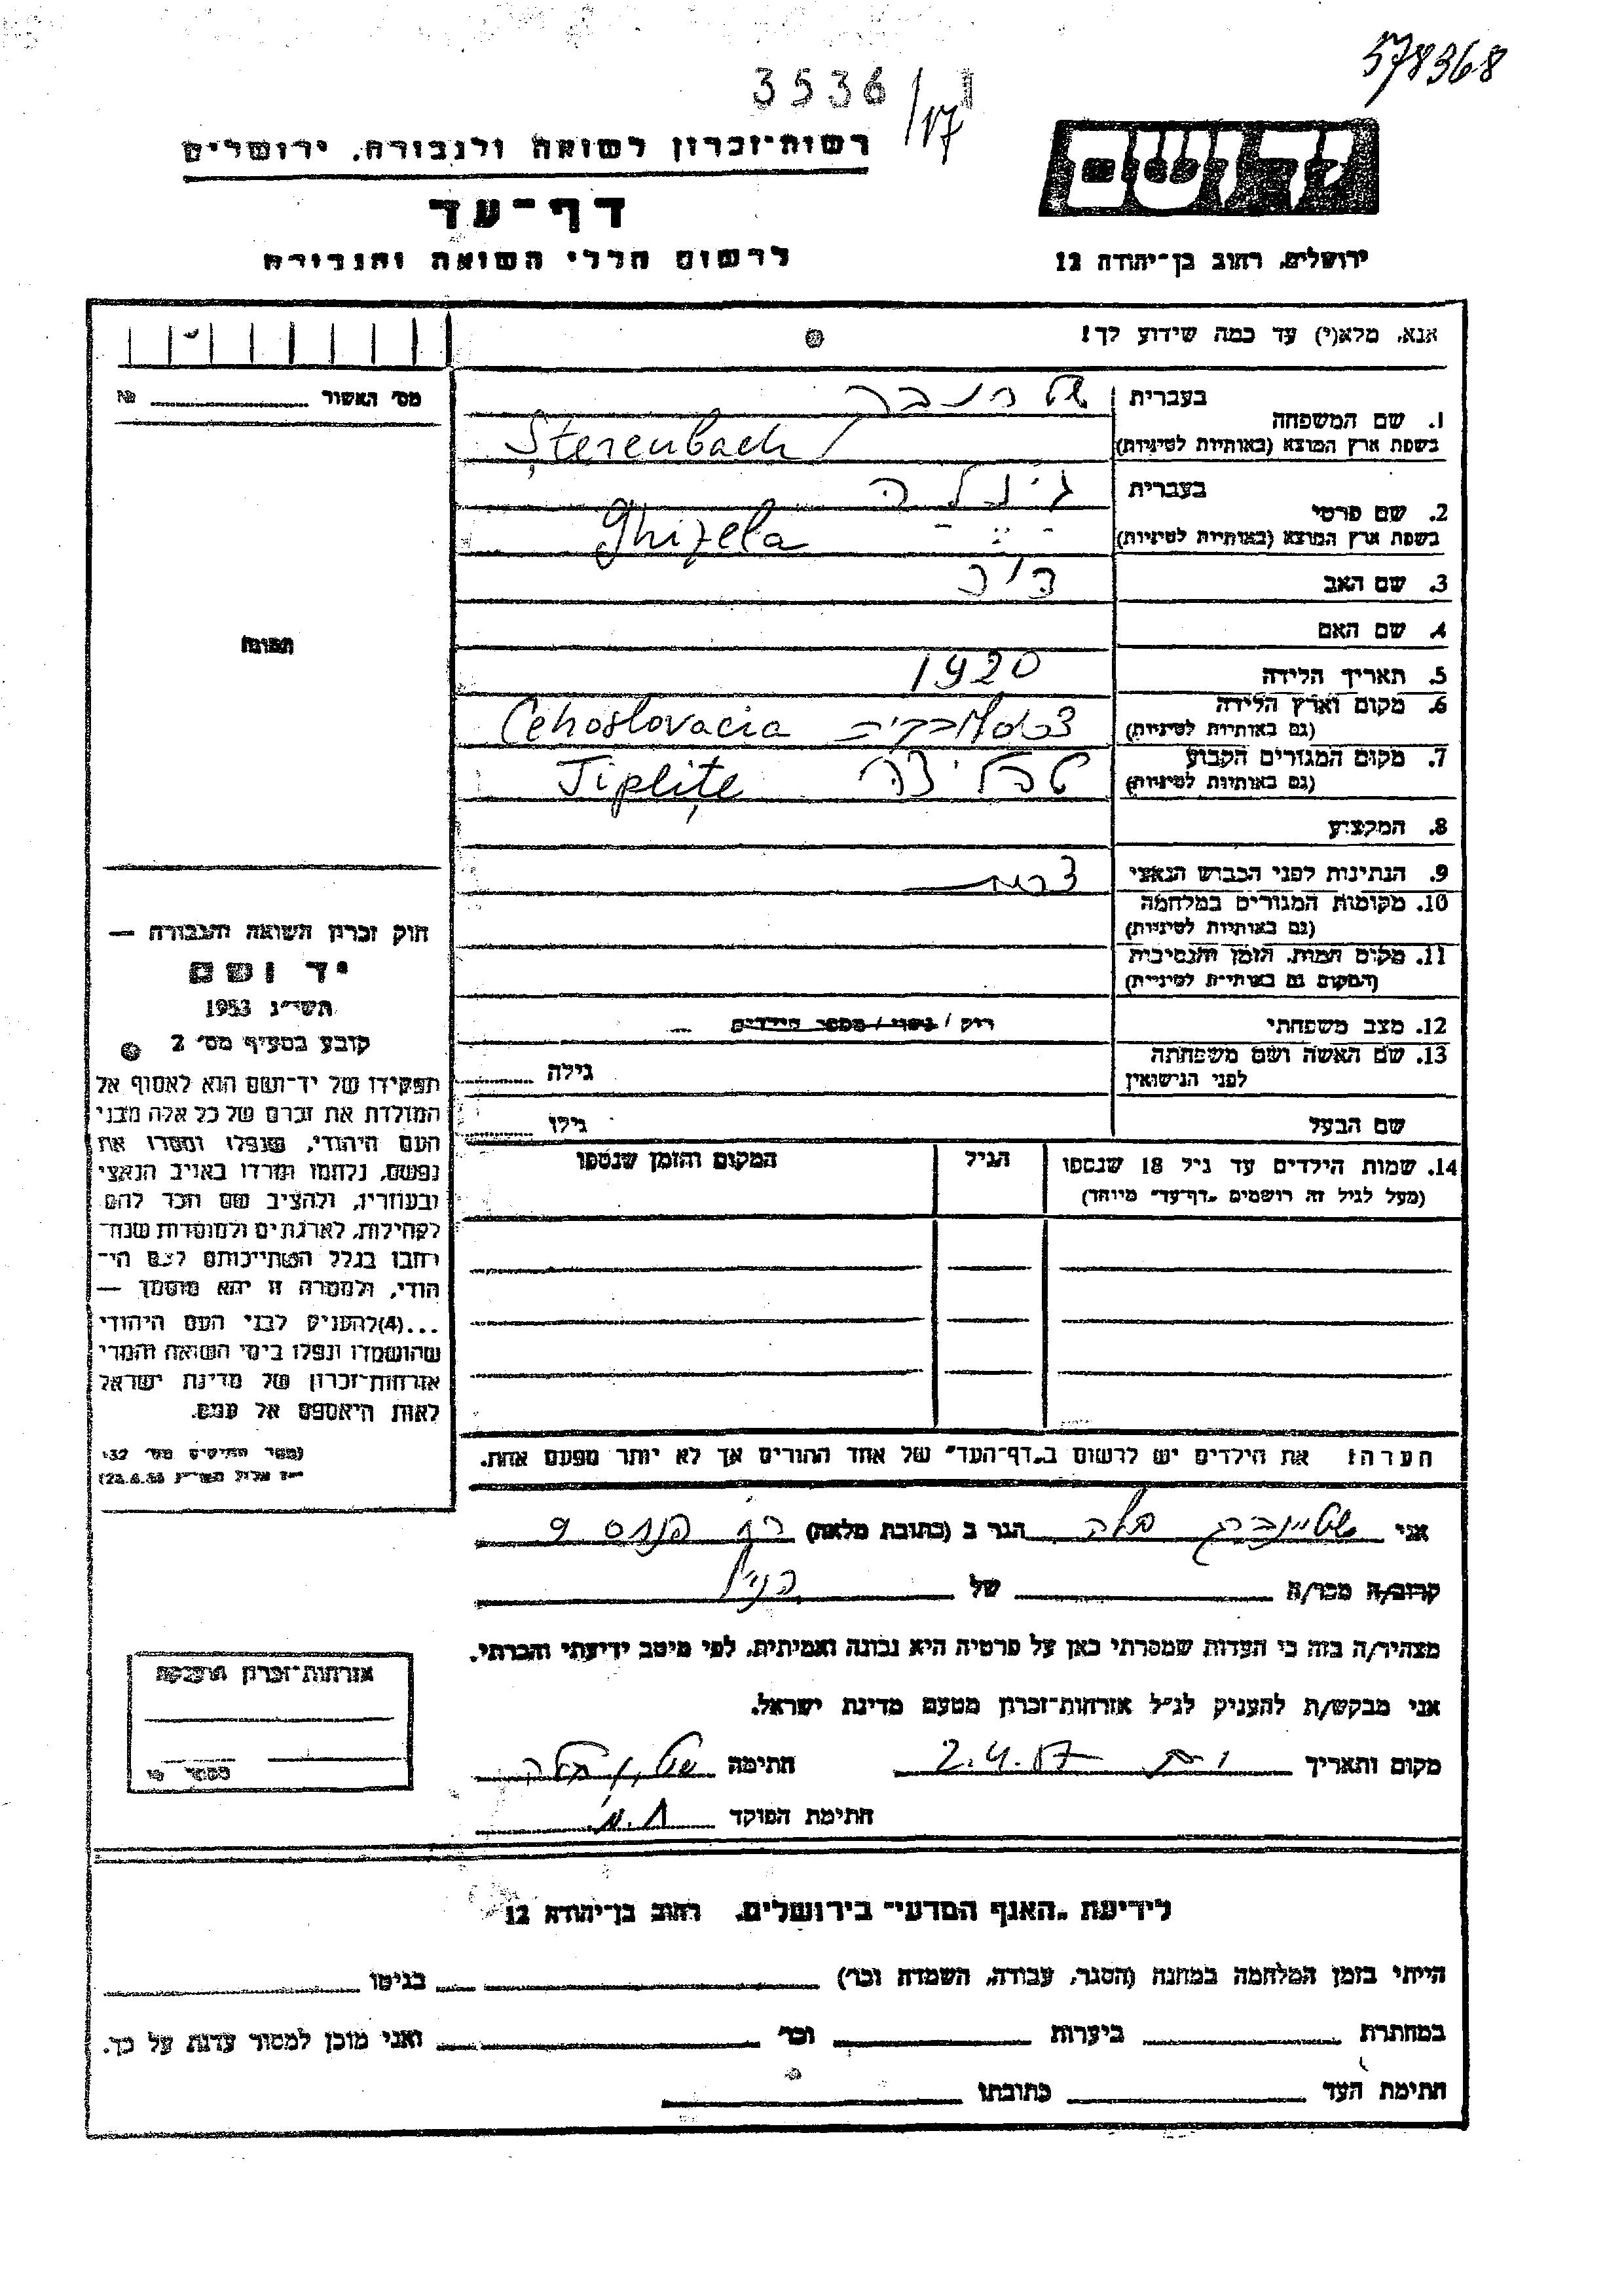 578368
3536/17
רשות־זכרון לשואה ולגבורה, ירושלים
יד ושם
דף־עד
לרשום חללי השואה והגבורה
ירושלים, רחוב בן־יהודה 12
אנא, מלא(י) עד כמה שידוע לך!
מס׳ האשור № 
1. שם המשפחה
בעברית
בשפת ארץ המוצא (באותיות לטיניות) Șterenbach
2. שם פרטי
בעברית גיזלה
בשפת ארץ המוצא (באותיות לטיניות) Ghizela
3. שם האב
4. שם האם
5. תאריך הלידה 1920
6. מקום וארץ הלידה
(גם באותיות לטיניות) Cehoslovacia
7. מקום המגורים הקבוע
(גם באותיות לטיניות) טפליצה Tiplițe
8. המקצוע
9. הנתינות לפני הכבוש הנאצי
10. מקומות המגורים במלחמה
(גם באותיות לטיניות)
11. מקום המות, הזמן והנסיבות
(המקום גם באותיות לטיניות)
12. מצב משפחתי רוק / נשוי / מספר הילדים
13. שם האשה ושם משפחתה
לפני הנישואין גילה
שם הבעל גילו
14. שמות הילדים עד גיל 18 שנספו
(מעל לגיל זה רושמים „דף־עד״ מיוחד)
הגיל
המקום והזמן שנספו
הערה: את הילדים יש לרשום ב„דף־העד״ של אחד ההורים אך לא יותר מפעם אחת.
תמונה
חוק זכרון השואה והגבורה —
יד ושם
תשי״ג 1953
קובע בסעיף מס׳ 2
תפקידו של יד־ושם הוא לאסוף אל
המולדת את זכרם של כל אלה מבני
העם היהודי, שנפלו ומסרו את
נפשם, נלחמו ומרדו באויב הנאצי
ובעוזריו, ולהציב שם וזכר להם
לקהילות, לארגונים ולמוסדות שנח־
רבו בגלל השתייכותם לעם הי־
הודי, ולמטרה זו יהא מוסמך —
...(4)להעניק לבני העם היהודי
שהושמדו ונפלו בימי השואה והמרי
אזרחות־זכרון של מדינת ישראל
לאות היאספם אל עמם.
אני הגר ב (כתובת מלאה)
קרוב/ה מכר/ה של
מצהיר/ה בזה כי העדות שמסרתי כאן על פרטיה היא נכונה ואמיתית, לפי מיטב ידיעתי והכרתי.
אני מבקש/ת להעניק לנ״ל אזרחות־זכרון מטעם מדינת ישראל.
מקום ותאריך 2.4.57 חתימה
חתימת הפוקד
אזרחות־זכרון הוענקה
לידיעת „האגף המדעי״ בירושלים, רחוב בן־יהודה 12
הייתי בזמן המלחמה במחנה (הסגר, עבודה, השמדה וכו׳) בגיטו
במחתרת ביערות וכו׳ ואני מוכן למסור עדות על כך.
חתימת העד כתובתו